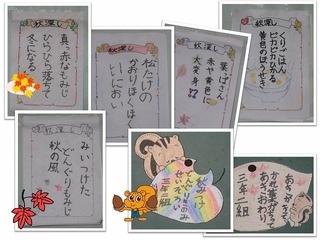 秋深し
真っ赤なもみじ
ひらひら落ちて
冬になる
秋深し
松たけの
かおりほくほく
いーにおい
秋深し
葉っぱさん
赤や黄色に
大変身
秋深し
くりごはん
ピカピカひかる
黄色のほうせき
秋深し
みいつけた
どんぐりもみじ
秋の風
三年二組
かれ葉がちって
あきおわり
三年二組